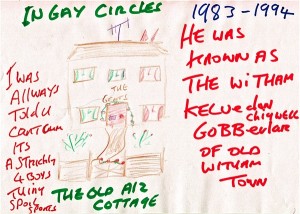 IN GAY CIRCLES
1983-1994
I WAS
ALLWAYS
TOLD U
CANT CUM
ITS
4 BOYS
THING
SPOIL
SPORTS
THE
GENTS
THE OLD A12
COTTAGE
HE WAS
KNOWN AS
THE WITHAM
KELVEDON
CHIGWELL
OF OLD
WITHAM
TOWN